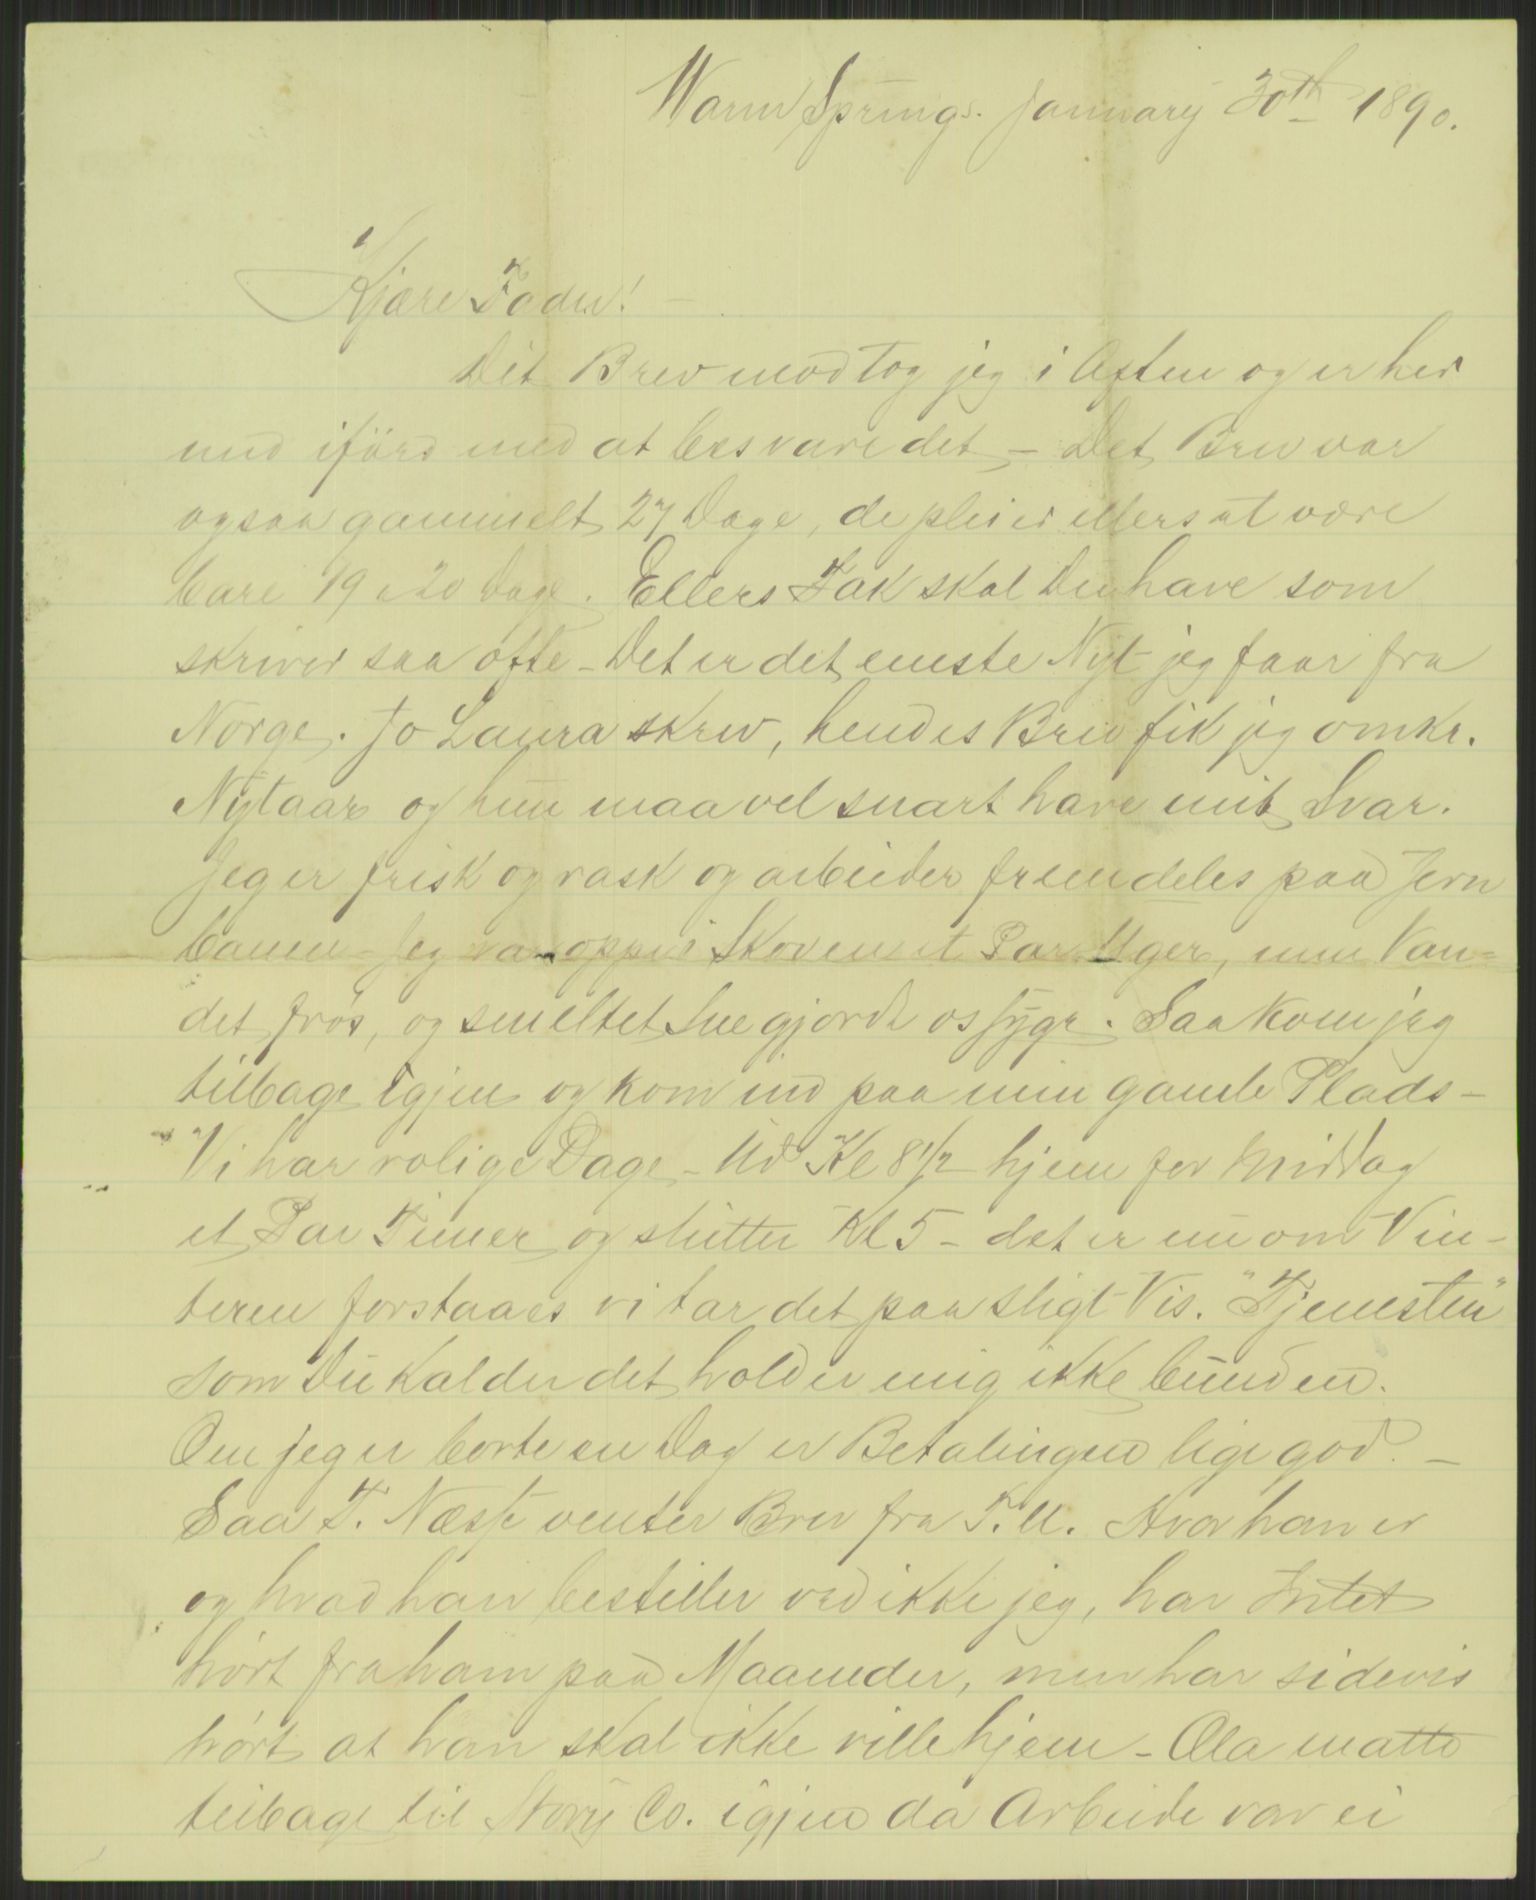 Warm Springs. January 30th 1890.
Kjære Fader! –
Dit Brev modtog jeg i Aften og er her
med ifärd med at besvare det – Det Brev var
ogsaa gammelt 27 Dage, de pleier ellers at være
bare 19 a 20 Dage. Ellers Tak skal Du have som
skriver saa ofte – Det er det eneste Nyt jeg faar fra
Norge. Jo Laura skrev, hendes Brev fik jeg omkr.
Nytaar og hun maa vel snart have mit Svar.
Jeg er frisk og rask og arbeider fremdeles paa Jern
banen – Jeg var oppe i Skoven et Par Uger, men Van=
det frøs, og smeltet Sne gjorde os syge. Saa kom jeg
tilbage igjen og kom ind paa min gamle Plads –
Vi har rolige Dage – Ud Kl 8 1/2 hjem for Middag
et Par Timer og slutter Kl 5 – det er nu om Vin-
teren forstaaes vi tar det paa sligt Vis. "Tjenesten"
som Du kalder det holder mig ikke bunden.
Om jeg er borte en Dag er Betalingen lige god. –
Saa T. Næss venter Brev fra T. M. Hvor han er
og hvad han bestiller ved ikke jeg, har Intet
hört fra ham paa Maaneder, men har sidevis
hört at han skal ikke ville hjem – Ola matte
tilbage til Story Co. igjen da Arbeide var ei